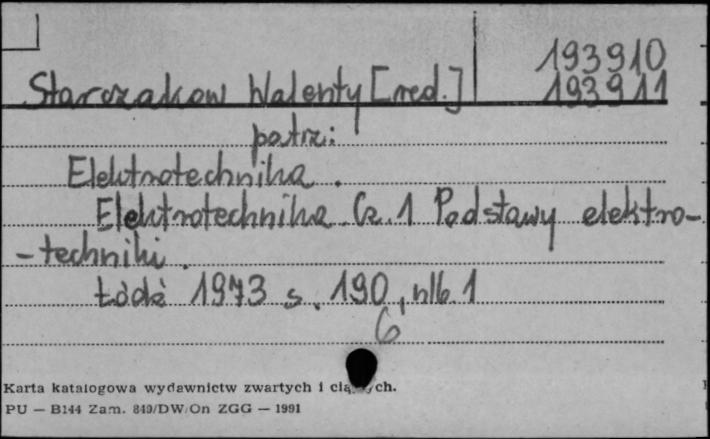 193910
Starczakow Walenty [red.] 193911
patrz:
Elektrotechnika.
Elektrotechnika Cz. 1 Podstawy elektro-
-techniki.
Łódź 1973 s. 190, nlb. 1
6
Karta katalogowa wydawnictw zwartych i
PU — B144 Zam. 849/DW/On ZGG — 1991